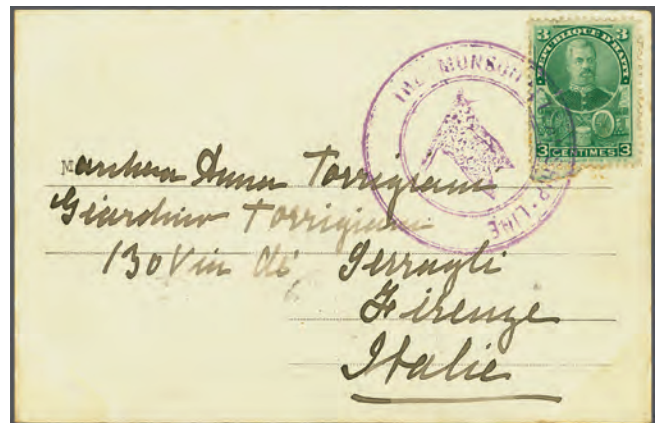 3 3
REPUBLIQUE D'HAITI
3 CENTIMES 3
THE MUNSON STEAMSHIP LINE
Marchesa Anna Torrigiani
Giardino Torrigiani
130 Via de' Serragli
Firenze
Italie